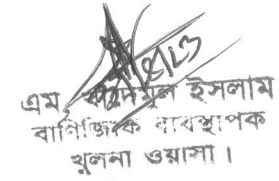 এম ইসলাম
বাণিজ্যিক ব্যবস্থাপক
খুলনা ওয়াসা।